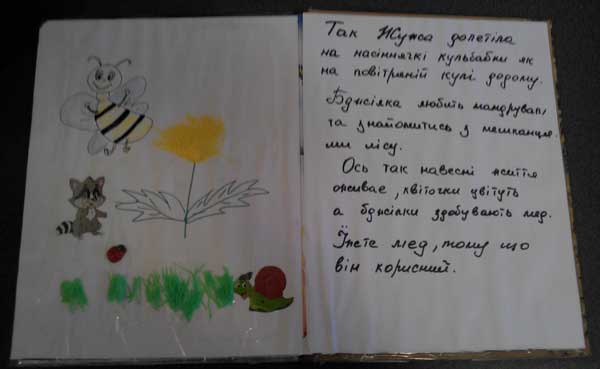 Так Жужа долетіла
на насіннячкі кульбабки як
на повітряній кулі додому.
Бджілка любить мандрувати
та знайомитись з мешканця-
ми лісу.
Ось так навесні життя
оживає, квіточки цвітуть
а бджілки здобувають мед.
Їжте мед, тому що
він корисний.